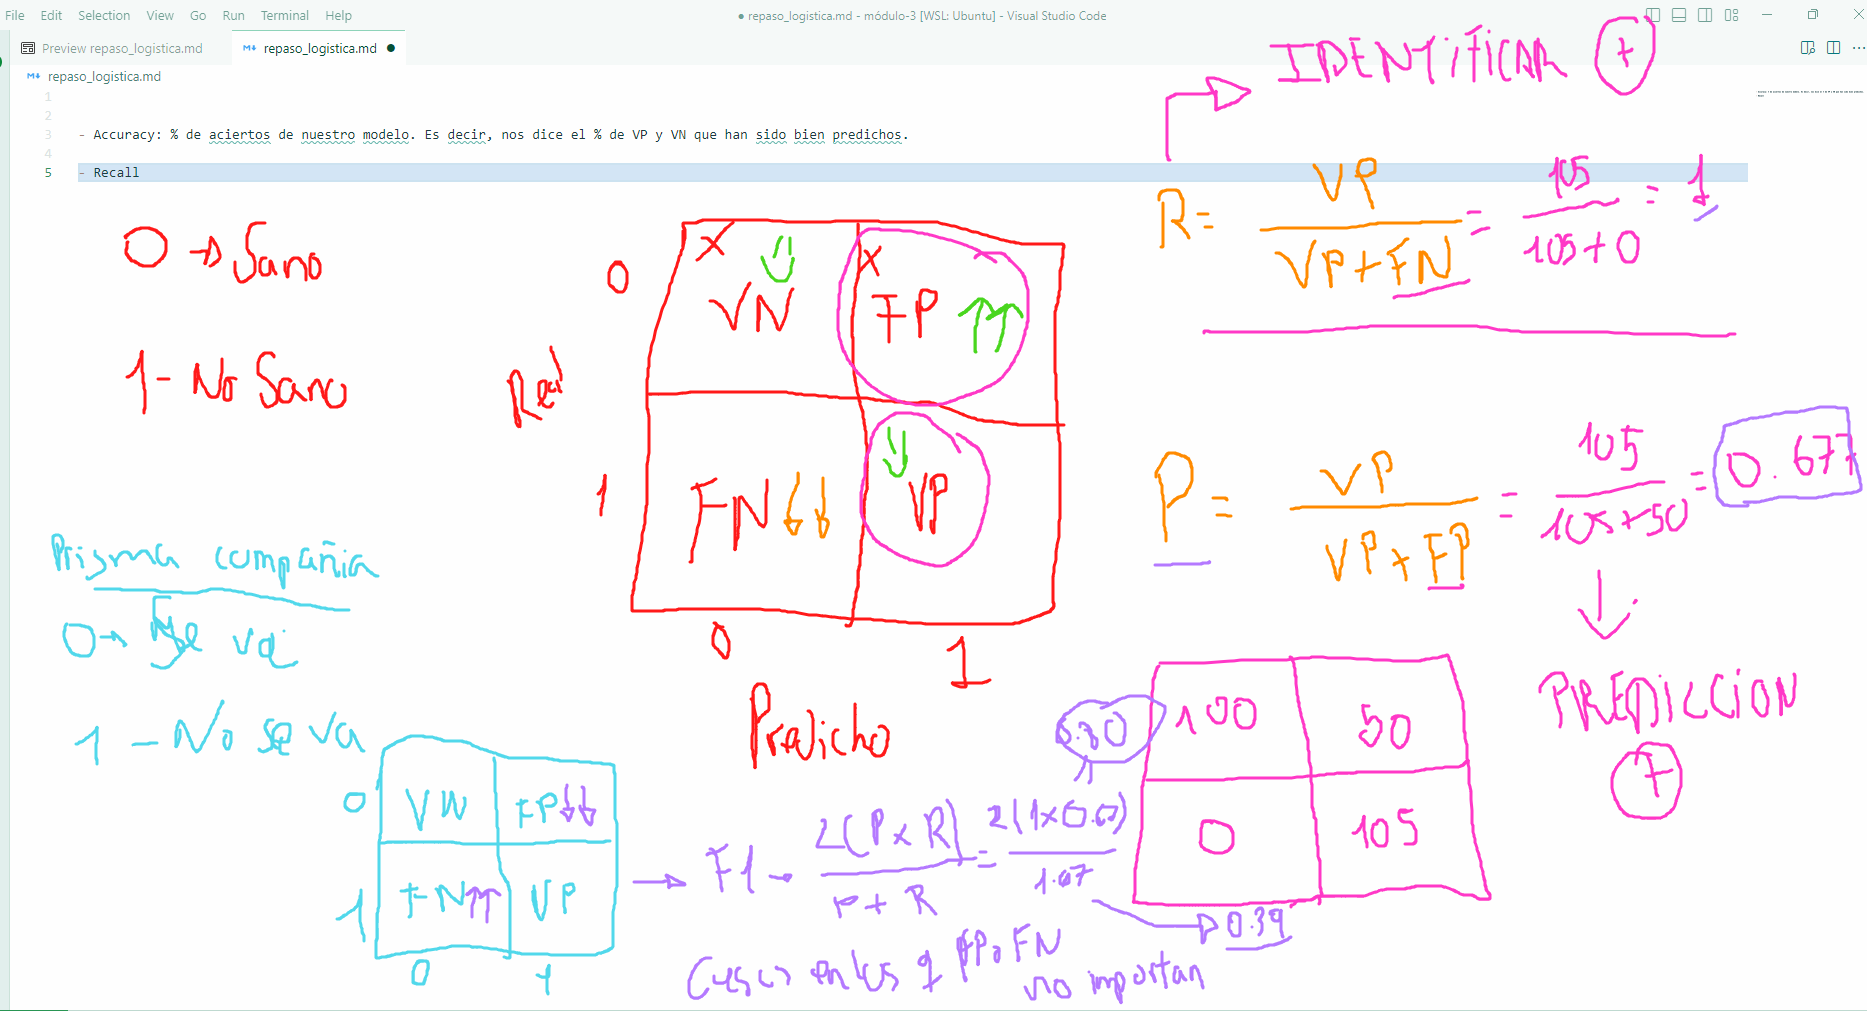 File Edit Selection View Go Run Terminal Help
● repaso_logistica.md - módulo-3 [WSL: Ubuntu] - Visual Studio Code
Preview repaso_logistica.md
repaso_logistica.md ●
repaso_logistica.md
1
2
3 - Accuracy: % de aciertos de nuestro modelo. Es decir, nos dice el % de VP y VN que han sido bien predichos.
4
5 - Recall
IDENTIFICAR +
R = VP / VP + FN = 105 / 105 + 0 = 1
0 → Sano
1 - No Sano
Real
0
X VN
X FP
1
FN
VP
0 1
Predicho
P = VP / VP + FP = 105 / 105 + 50 = 0.677
PREDICCION
+
100 50
0 105
Prisma compañia
0 → Se va
1 - No se va
0 VN FP
1 FN VP
0 1
F1 → 2(P x R) / P + R = 2(1x0.67) / 1.67
0.80
0.39
FP o FN
no importan